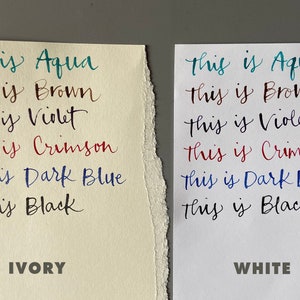 is Aqua
is Brown
is Violet
is Crimson
is Dark Blue
is Black
IVORY
This is Aqu
This is Brow
This is Viole
This is Crim
This is Dark B
This is Black
WHITE